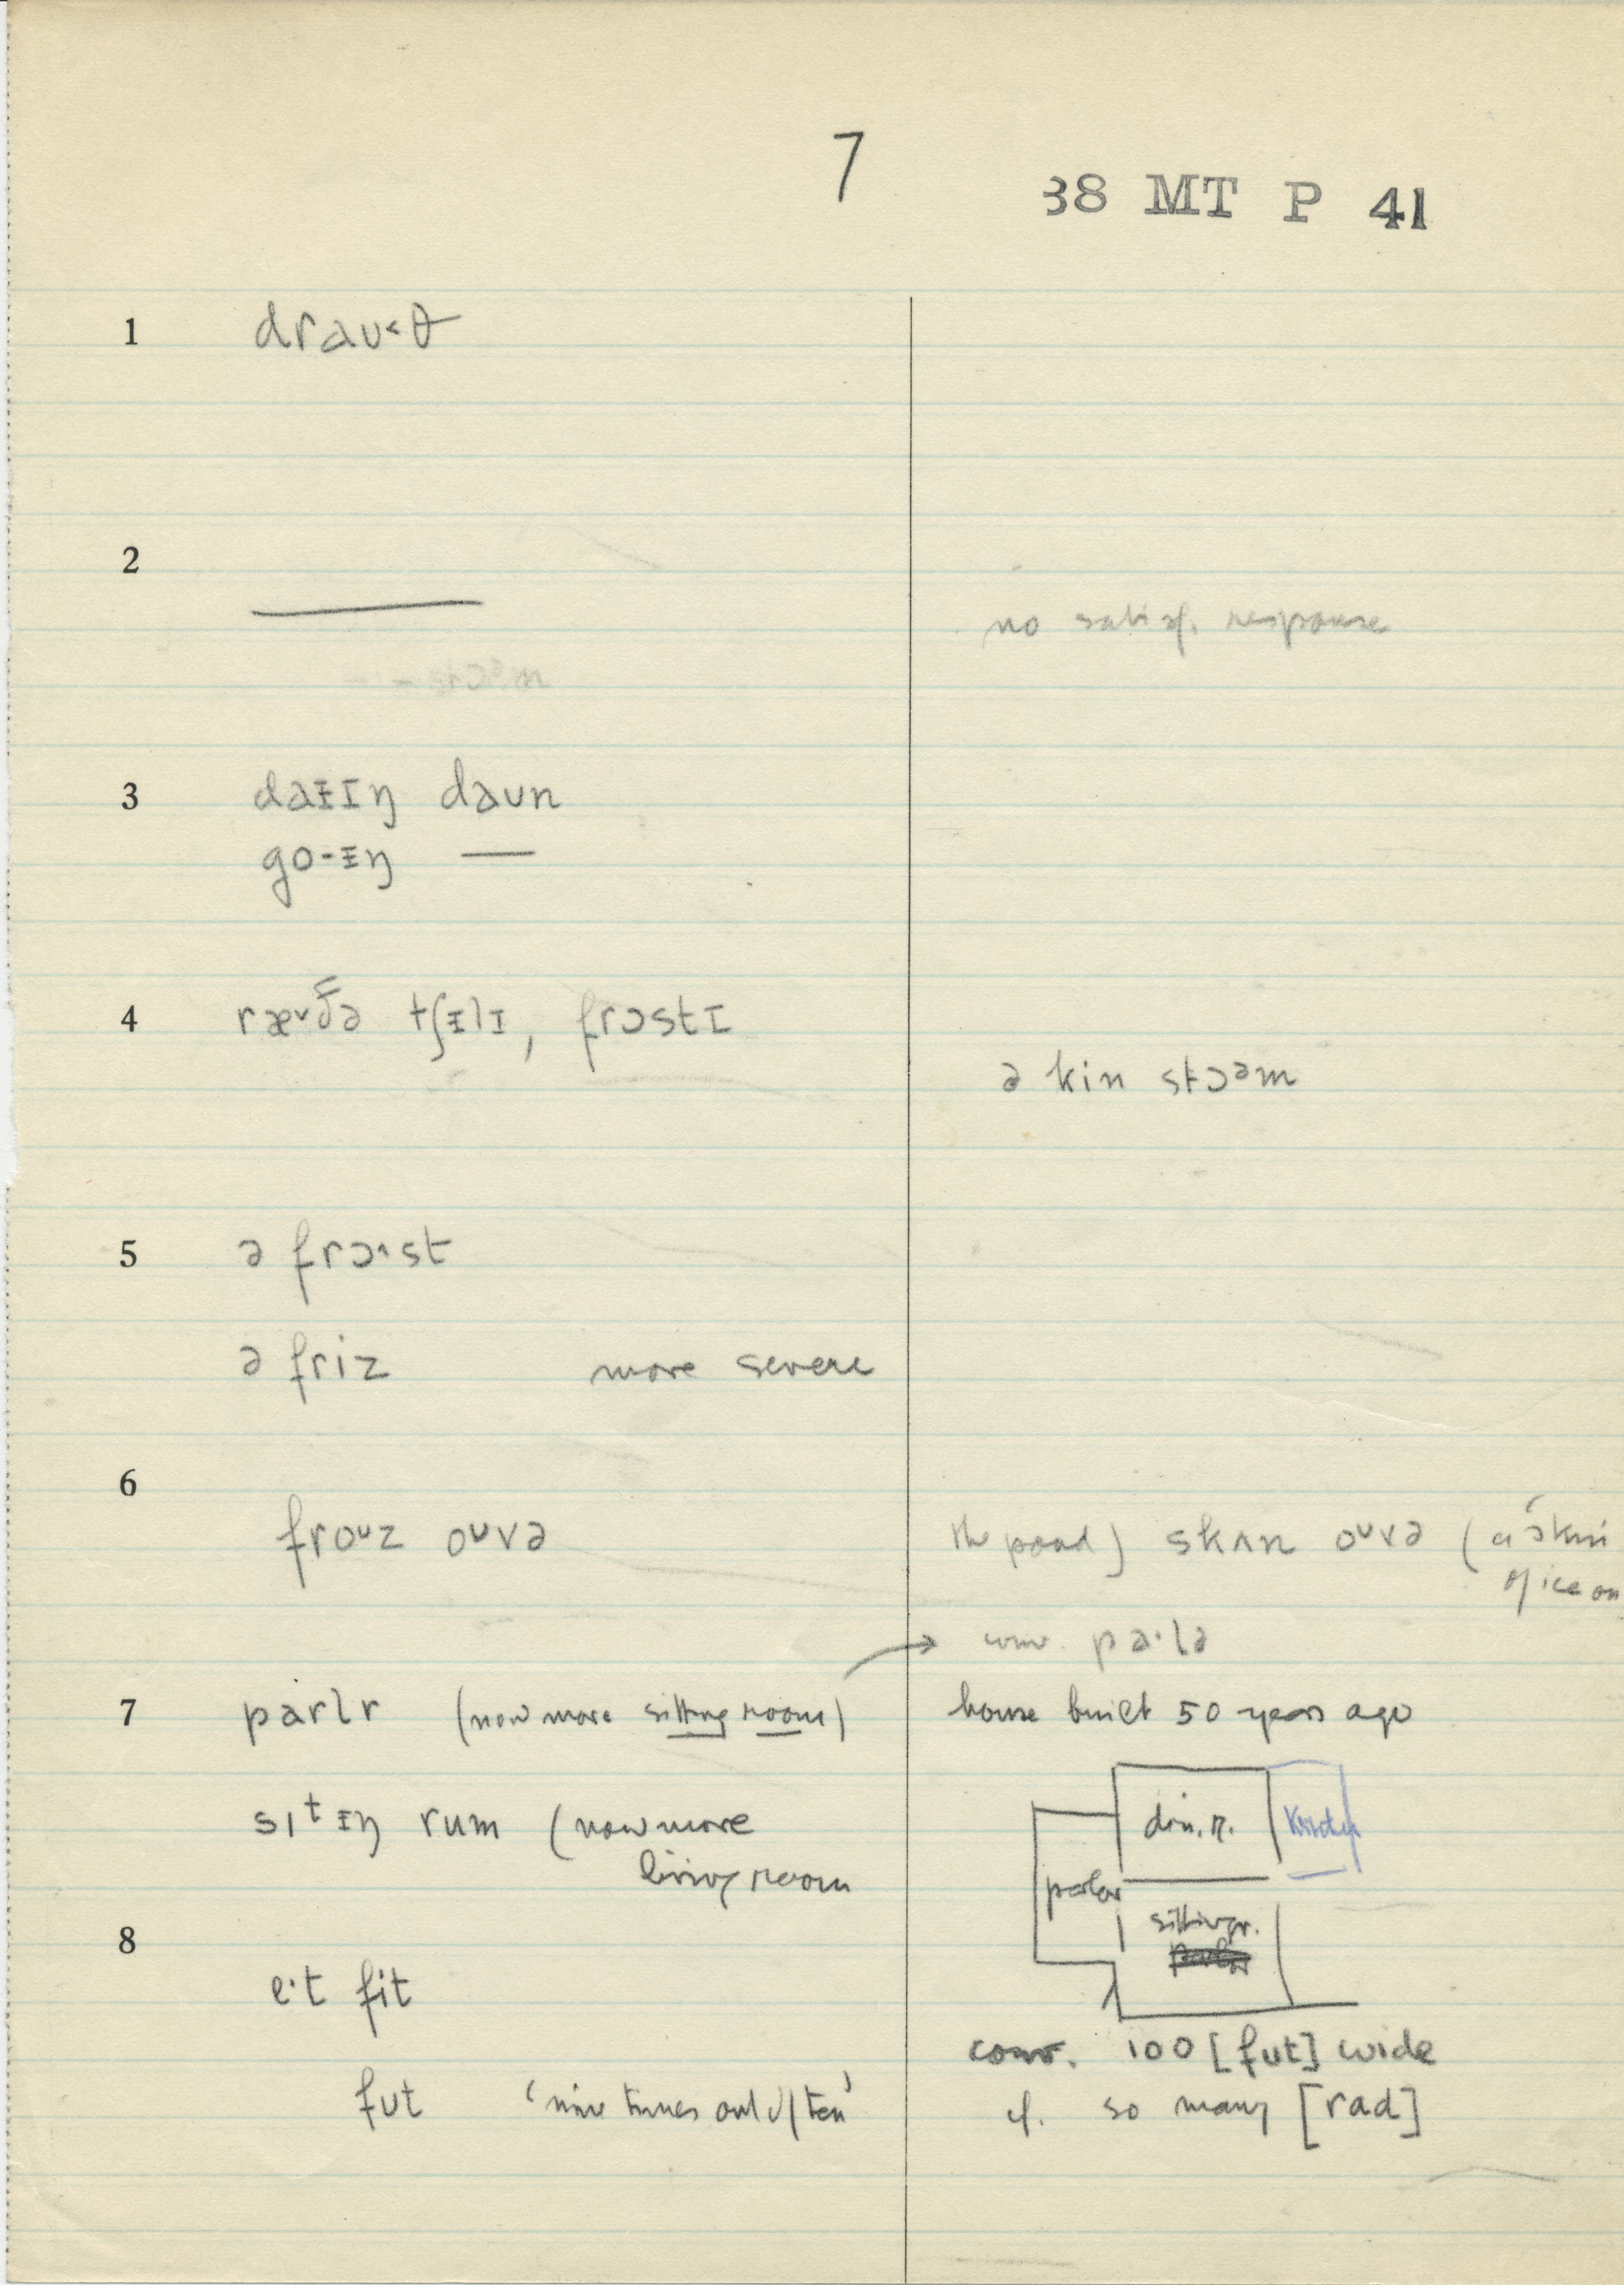 7
38 MT P 41
1 draʊ˂θ
2 ———
no satisf. response
3 daᵻɪŋ daʊn
go-ᵻŋ ——
4 ræ˅ðə tʃᵻlɪ, frɔstɪ
ə kin stɔəm
5 ə frɔ˄st
ə friz more severe
6
froᴜz oᴜvə the pond) skʌn oᴜvə (a skin
of ice on
conv. pa·lə
7 parlr (now more sitting room) house built 50 years ago
sɪtᵻŋ rum (now more
living room
din. r. Kitchen
parlor
sitting r.
8
e·t fit
conv. 100 [fut] wide
fut 'nine times out of ten'
cf. so many [rad]